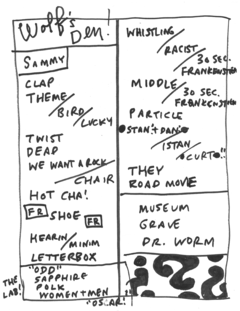 Wolf's
Den!
SAMMY
CLAP
THEME/
BIRD/
LUCKY
TWIST
DEAD
WE WANT A ROCK/
CHAIR
HOT CHA!
FR SHOE FR
HEARIN/
MINIM
LETTERBOX
THE LAB!
"ODD"
SAPPHIRE
POLK
WOMEN+MEN
WHISTLING/
RACIST/
30 SEC.
FRANKENSTEIN
MIDDLE/
30 SEC.
FRANKENSTEIN
PARTICLE
STAN+DAN/
ISTAN
CURT!!
THEY
ROAD MOVIE
MUSEUM
GRAVE
DR. WORM